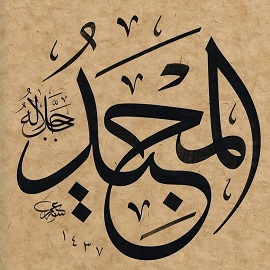 المجيد
جل جلاله
١٤٣٧